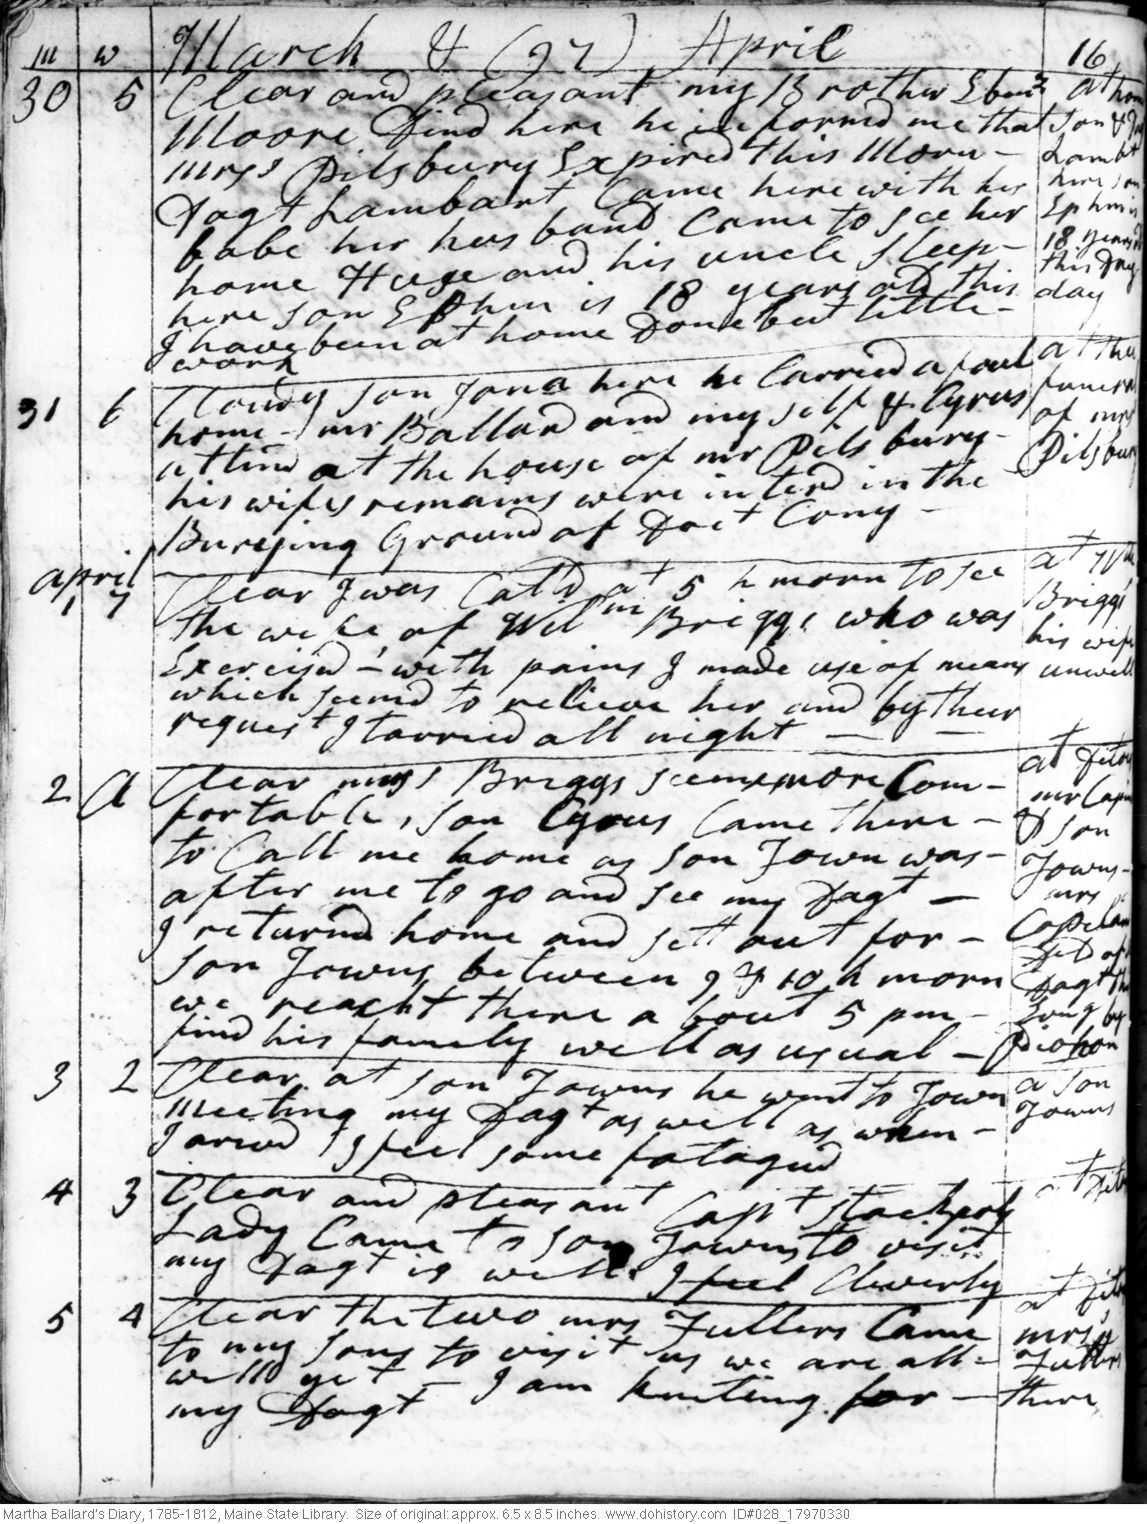 m w March & (97) April 16
30 5 Clear and pleasant my Brother Ebenz at
Moore Dind here he informed me that son &
mrss Pilsbury Expired this Morn - Lambt
Dagt Lambart Came here with her here son
babe her husband Came to see her Ephm is
home Huse and his uncle sleep- 18 years
here son Ephm is 18 years old this this Day
I have been at home Done but little- day
work
31 6 Cloudy son Jona here he Carried a foul at the
home - mr Ballard and my self & Cyrus funeral
attind at the house of mr Pilsbury- of mrs
his wifes remains were interd in the Pilsbury
Burying Ground of Doct Cony -
April
1 7 Clear I was Calld at 5 h morn to see at Wm
the wife of Wilm Briggs who was Briggs
Exercisd - with pains I made use of means his wife
which seemd to relieve her and by their unwell
request I tarried all night - -
2 A Clear mrss Briggs seems more Com- at
fortable, son Cyrus Came there - mr
to Call me home as son Town was- & son
after me to go and see my Dagt - Towns-
I returnd home and sett out for - mrs
son Towns between 9 & 10 h morn Copelan
we reacht there about 5 pm - Dagt
find his family well as usual - by
3 2 Clear. at son Towns he went to Town a son
meeting my Dagt as well as when - Towns
I arivd I feel some fatagud
4 3 Clear and pleasant Capt Stackpoly at
Lady Came to son Towns to visit
my Dagt is well. I feel Cleverly
5 4 Clear the two mrs Fullers Came at
to my sons to visit us we are all - mrss
well yet - I am knitting for - Fullers
my Dagt there
Martha Ballard's Diary, 1785-1812, Maine State Library. Size of original: approx. 6.5 x 8.5 inches. www.dohistory.com ID#028_17970330